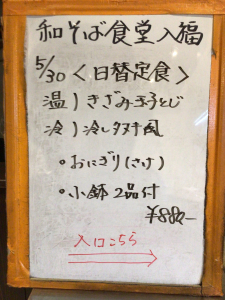 和そば食堂入福
5/30〈日替定食〉
温)きざみ玉子とじ
冷)冷したぬき風
・おにぎり(さけ)
・小鉢2品付
¥880-
入口こちら